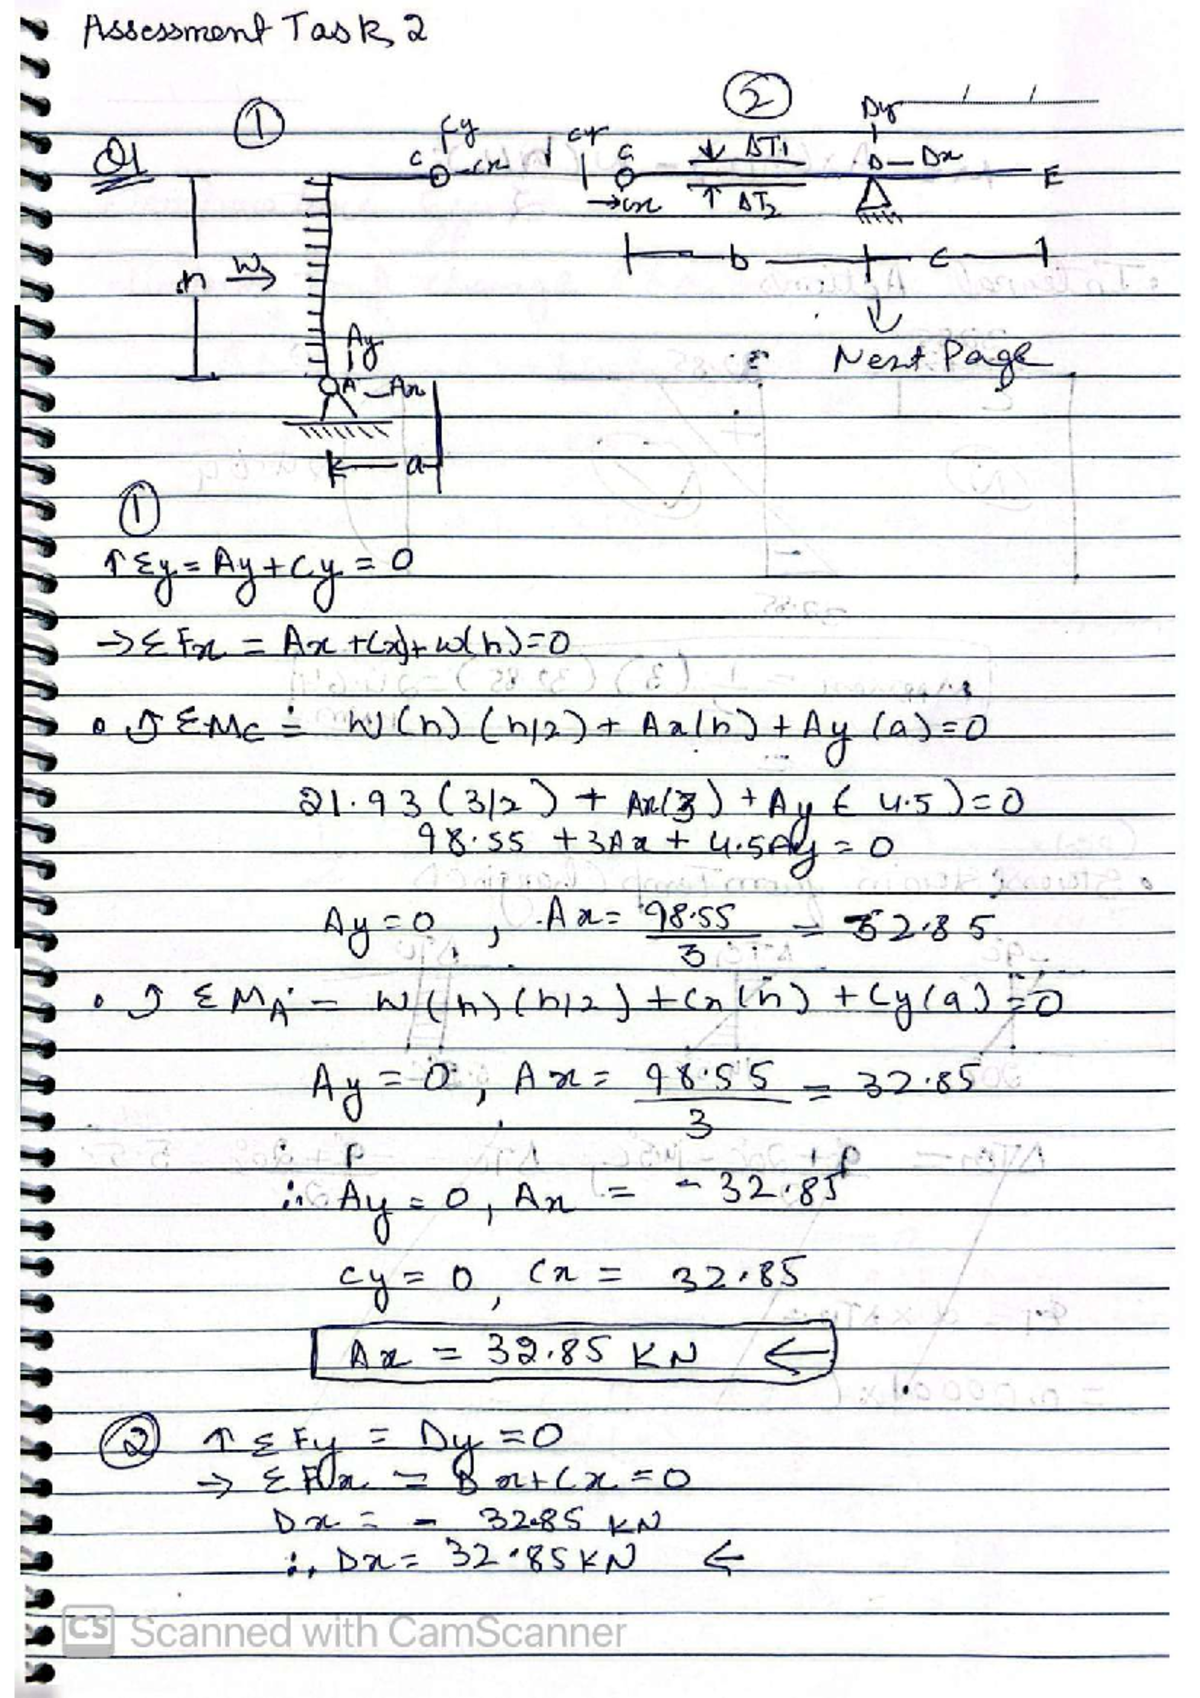 Assessment Task 2
① ②
Q1
Cy
C Cx
Cy
C
→Cx
↓ ΔT1
↑ ΔT2
Dy
D - Dx
E
h
W →
b
c
Next Page
Ay
A - Ax
a
①
↑ Σy = Ay + Cy = 0
→ Σ Fx = Ax + (x) + w(h) = 0
• ↺ Σ Mc = W (h) (h/2) + Ax(h) + Ay (a) = 0
21.93 (3/2) + Ax(3) + Ay ( 4.5) = 0
98.55 + 3Ax + 4.5Ay = 0
Ay = 0 , Ax = 98.55/3 = 32.85
• ↺ Σ MA = W (h) (h/2) + Cx (h) + Cy (a) = 0
Ay = 0 , Ax = 98.55/3 = 32.85
∴ Ay = 0, Ax = - 32.85
Cy = 0, Cx = 32.85
Ax = 32.85 KN ←
② ↑ Σ Fy = Dy = 0
→ Σ Fx = Dx + Cx = 0
Dx = - 32.85 KN
∴ Dx = 32.85 KN ←
CS Scanned with CamScanner